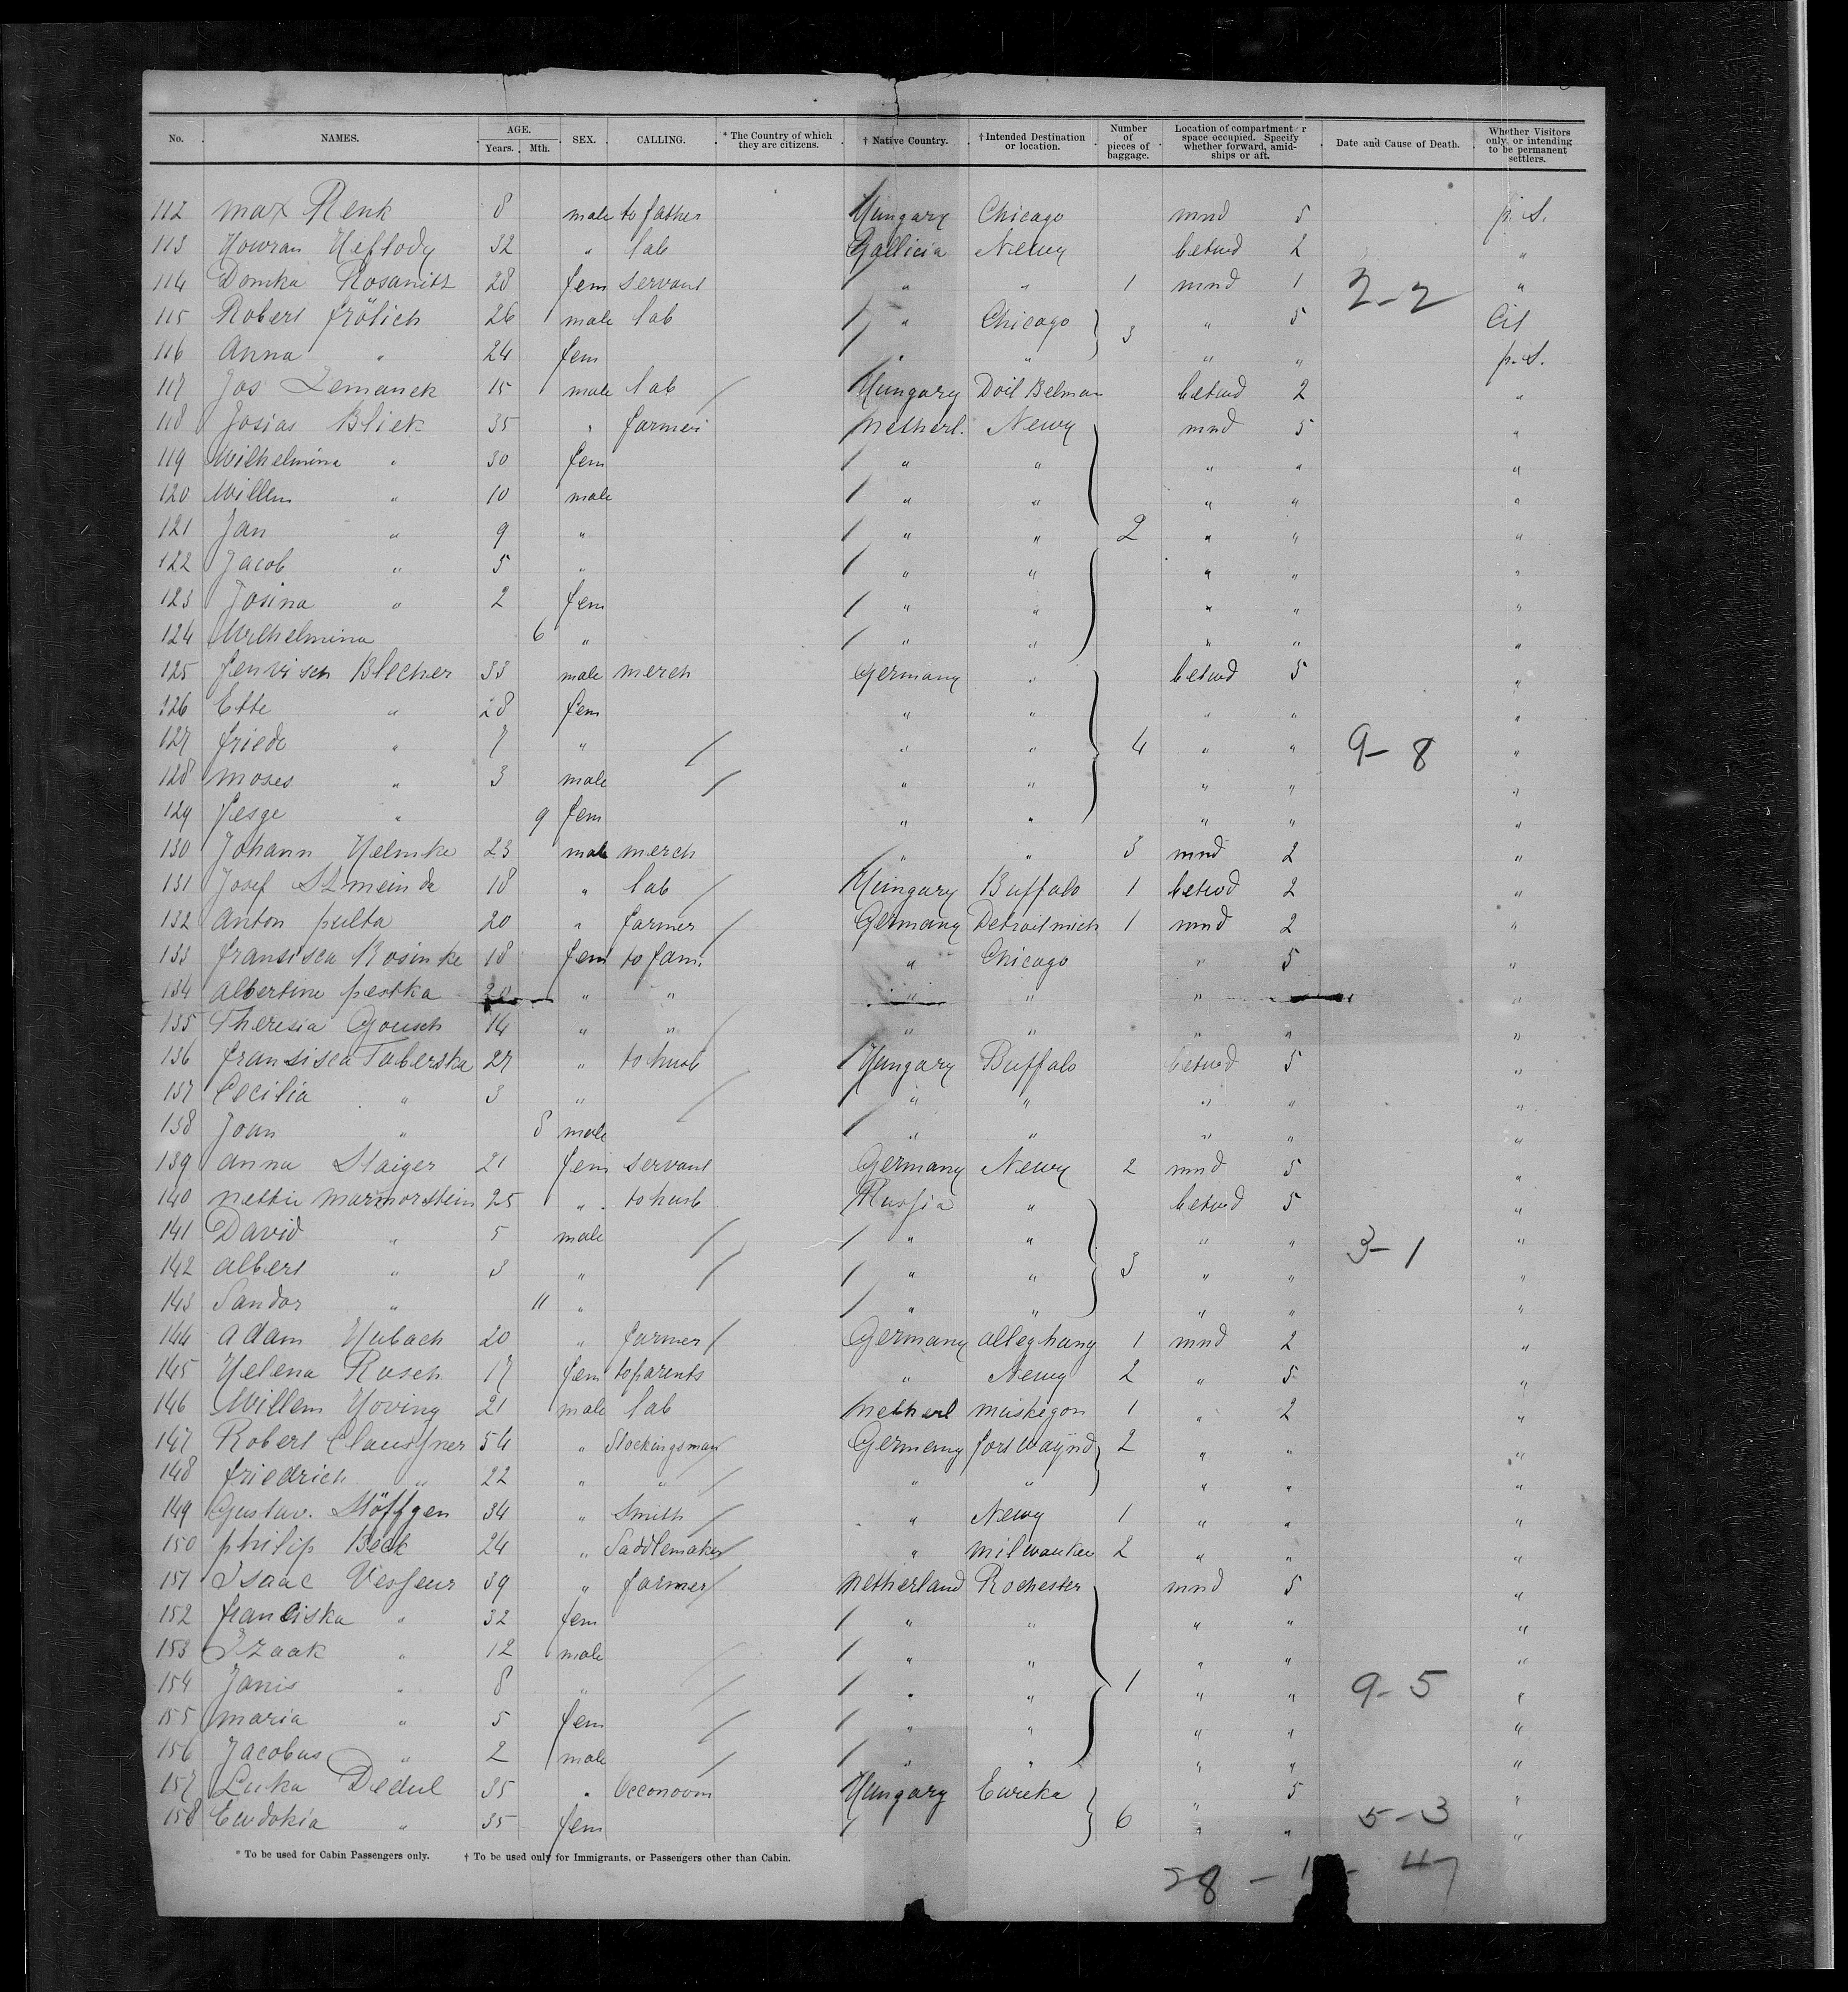 No. NAMES. AGE. Years. Mth. SEX. CALLING. * The Country of which they are citizens. † Native Country. † Intended Destination or location. Number of pieces of baggage. Location of compartment or space occupied. Specify whether forward, amidships or aft. Date and Cause of Death. Whether Visitors only, or intending to be permanent settlers.
112 Max Renk 8 male to father Hungary Chicago mnd 5 p. S.
113 32 " lab Gallicia Newy betwd 2 "
114 Domka 28 fem servant " " 1 mnd 1 2-2 "
115 Robert Frölich 26 male lab " Chicago 3 " 5 Cit
116 Anna " 24 fem " " " " p. S.
117 Jos Zemanek 15 male lab Hungary betwd 2 "
118 Josias Bliek 35 " farmer Netherl. Newy mnd 5 "
119 Wilhelmina " 30 fem " " " " "
120 Willem " 10 male " " " " "
121 Jan " 9 " " " 2 " " "
122 Jacob " 5 " " " " " "
123 Josina " 2 fem " " " " "
124 Wilhelmina 6 " " " " " "
125 Blecher 33 male merch Germany " betwd 5 "
126 Ette " 28 fem " " " " "
127 Friede " 7 " " " 4 " " 9-8 "
128 Moses " 3 male " " " " "
129 " 9 fem " " " " "
130 Johann Helmke 23 male merch " " 3 mnd 2 "
131 Josef 18 " lab Hungary Buffalo 1 betwd 2 "
132 Anton Pulta 20 " farmer Germany Detroit mich 1 mnd 2 "
133 Fransisca Rosinke 18 fem to fam. " Chicago " 5 "
134 Albertine Pestka 20 " " " " " "
135 Theresia Gousch 14 " " " " " " "
136 Fransisca Taberska 27 " to husb Hungary Buffalo betwd 5 "
137 Cecilia " 3 " " " " " "
138 Joan " 8 male " " " " "
139 Anna Staiger 21 fem servant Germany Newy 2 mnd 5 "
140 Nettie Marmorstein 25 " to husb Russia " betwd 5 "
141 David " 5 male " " " " 3-1 "
142 Albert " 3 " " " 3 " " "
143 Sandor " 11 " " " " " "
144 Adam Hubach 20 " farmer Germany alleghany 1 mnd 2 "
145 Helena Rusch 17 fem to parents " Newy 2 " 5 "
146 Willem Hoving 21 male lab Netherl muskegon 1 " 2 "
147 Robert Claussner 54 " Germany fort Waynd 2 " " "
148 Friedrich " 22 " " " " " " "
149 Gustav. Höffgen 34 " Smith " Newy 1 " " "
150 Philip Beck 24 " Saddlemaker " milwaukee 2 " " "
151 Isaac Vesseur 39 " farmer Netherland Rochester mnd 5 "
152 Franciska " 32 fem " " " " "
153 Izaak " 12 male " " " " "
154 Janis " 8 " " " 1 " " 9-5 "
155 Maria " 5 fem " " " " "
156 Jacobus " 2 male " " " " "
157 Luka Dedul 35 " Hungary Eureka " 5 "
158 Eudokia " 35 fem 6 " " 5-3 "
* To be used for Cabin Passengers only. † To be used only for Immigrants, or Passengers other than Cabin.